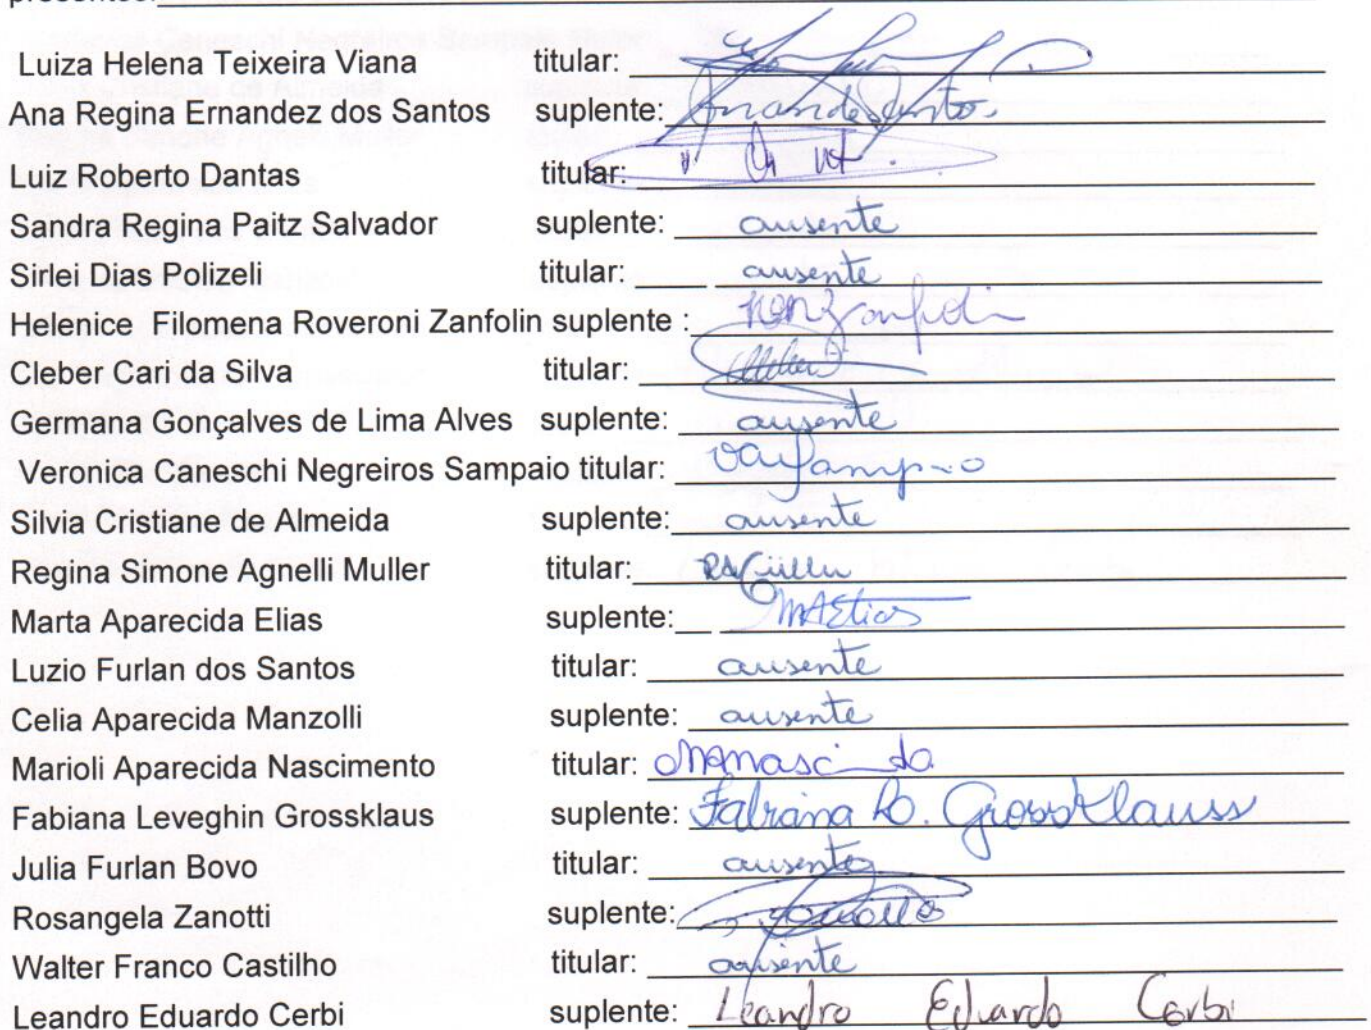 Luiza Helena Teixeira Viana titular:
Ana Regina Ernandez dos Santos suplente:
Luiz Roberto Dantas titular:
Sandra Regina Paitz Salvador suplente: ausente
Sirlei Dias Polizeli titular: ausente
Helenice Filomena Roveroni Zanfolin suplente :
Cleber Cari da Silva titular:
Germana Gonçalves de Lima Alves suplente: ausente
Veronica Caneschi Negreiros Sampaio titular:
Silvia Cristiane de Almeida suplente: ausente
Regina Simone Agnelli Muller titular:
Marta Aparecida Elias suplente: MAElias
Luzio Furlan dos Santos titular: ausente
Celia Aparecida Manzolli suplente: ausente
Marioli Aparecida Nascimento titular:
Fabiana Leveghin Grossklaus suplente: Fabiana L. Grossklauss
Julia Furlan Bovo titular: ausente
Rosangela Zanotti suplente:
Walter Franco Castilho titular: ausente
Leandro Eduardo Cerbi suplente: Leandro Eduardo Cerbi